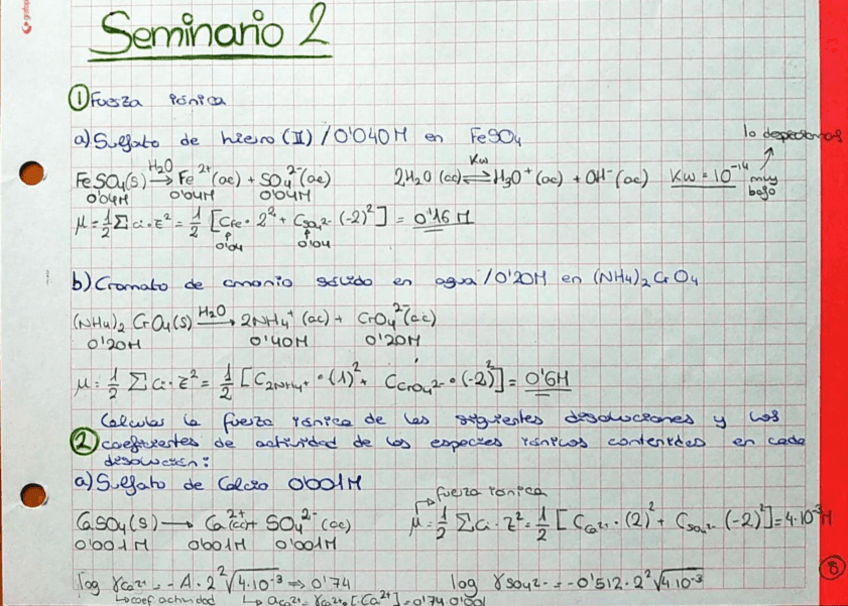 Seminario 2
① Fuerza iónica
a) Sulfato de hierro (II) / 0'040M en FeSO4
lo despreciamos
FeSO4(s) H2O→ Fe2+(ac) + SO4 2-(ac)    2H2O (ac) Kw⇌ H3O+ (ac) + OH- (ac)    Kw = 10^-14 muy bajo
0'04M 0'04M 0'04M
μ = 1/2 Σ ci · z² = 1/2 [CFe · 2² + CSO4 2- (-2)²] = 0'16 M
0'04 0'04
b) Cromato de amonio sólido en agua / 0'20M en (NH4)2CrO4
(NH4)2 CrO4(s) H2O→ 2NH4+ (ac) + CrO4 2-(ac)
0'20M 0'40M 0'20M
μ = 1/2 Σ Ci · z² = 1/2 [C2NH4+ · (1)² + CCrO4 2- · (-2)²] = 0'6M
Calcular la fuerza iónica de las siguientes disoluciones y los
② coeficientes de actividad de las especies iónicas contenidas en cada
disolución:
a) Sulfato de Calcio 0'001M
fuerza iónica
CaSO4(s) → Ca2+(ac) + SO4 2-(ac)    μ = 1/2 Σ Ci · z² = 1/2 [CCa2+ · (2)² + CSO4 2- (-2)²] = 4·10^-3 M
0'001M 0'001M 0'001M
8
log γCa2+ = -A · 2² √4·10^-3 ⇒ 0'74    log γSO4 2- = -0'512 · 2² √4·10^-3
coef actividad    aCa2+ = γCa2+ · [Ca2+] = 0'74·0'001